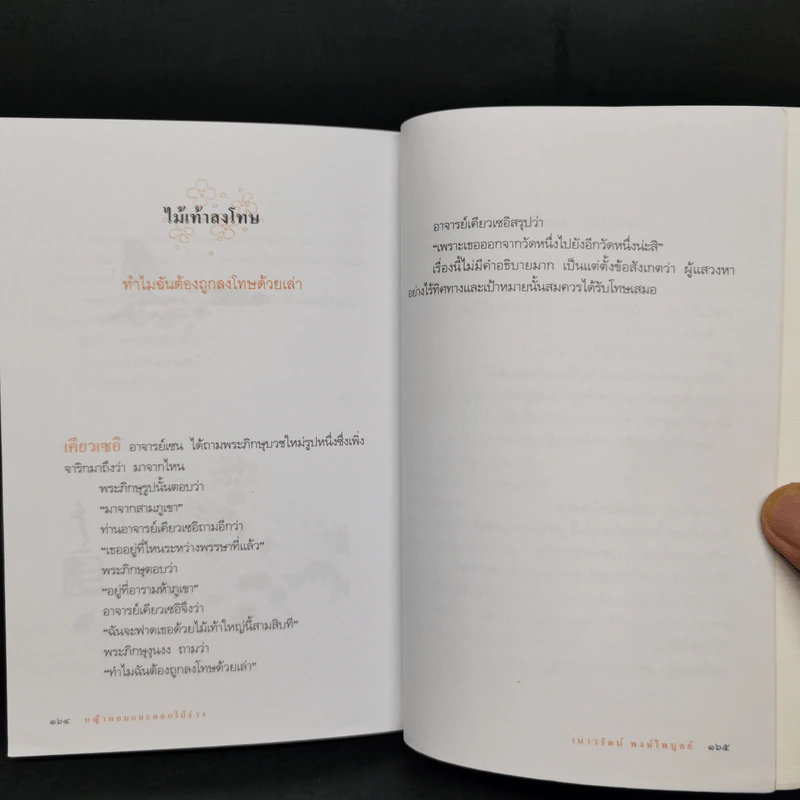 ไม้เท้าลงโทษ
ทำไมฉันต้องถูกลงโทษด้วยเล่า
เคียวเซอิ อาจารย์เซน ได้ถามพระภิกษุบวชใหม่รูปหนึ่งซึ่งเพิ่ง
จาริกมาถึงว่า มาจากไหน
พระภิกษุรูปนั้นตอบว่า
“มาจากสามภูเขา”
ท่านอาจารย์เคียวเซอิถามอีกว่า
“เธออยู่ที่ไหนระหว่างพรรษาที่แล้ว”
พระภิกษุตอบว่า
“อยู่ที่อารามห้าภูเขา”
อาจารย์เคียวเซอิจึงว่า
“ฉันจะฟาดเธอด้วยไม้เท้าใหญ่นี้สามสิบที”
พระภิกษุงุนงง ถามว่า
“ทำไมฉันต้องถูกลงโทษด้วยเล่า”
๑๖๔ หญ้าหอมและดอกไม้ร่วง
อาจารย์เคียวเซอิสรุปว่า
“เพราะเธอออกจากวัดหนึ่งไปยังอีกวัดหนึ่งน่ะสิ”
เรื่องนี้ไม่มีคำอธิบายมาก เป็นแต่ตั้งข้อสังเกตว่า ผู้แสวงหา
อย่างไร้ทิศทางและเป้าหมายนั้นสมควรได้รับโทษเสมอ
เนาวรัตน์ พงษ์ไพบูลย์ ๑๖๕